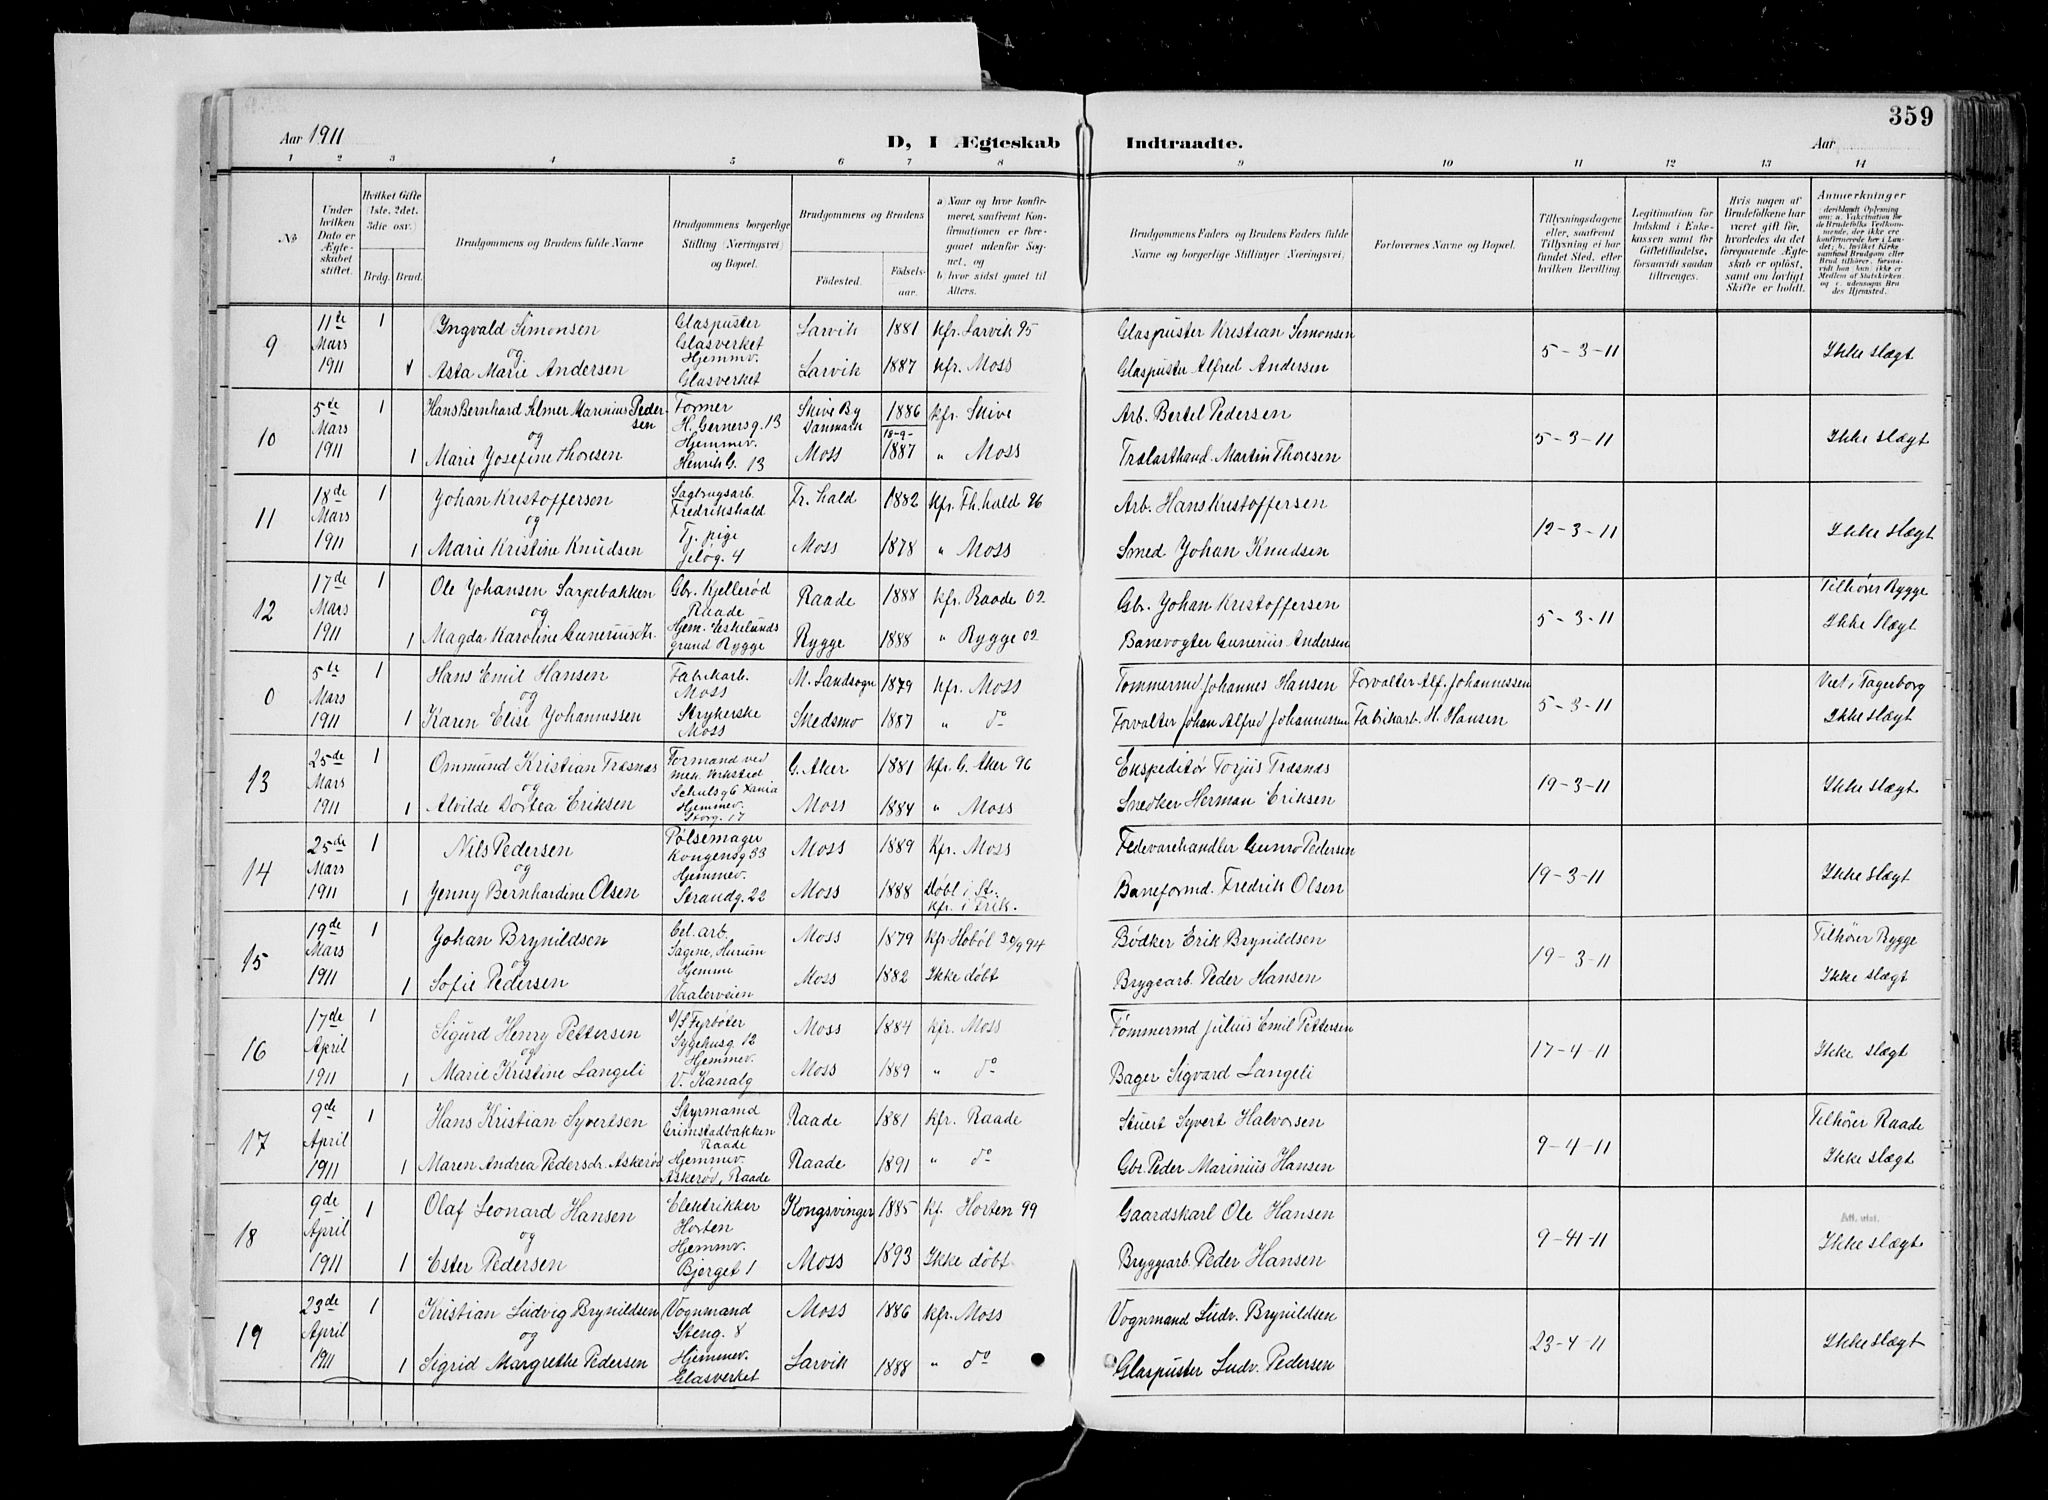 359
Aar 1911
D, I Ægteskab Indtraadte.
Aar
1 2 3 4 5 6 7 8 9 10 11 12 13 14
No
Under hvilken Dato er Ægteskabet stiftet.
Hvilket Gifte (1ste, 2det, 3die osv.)
Brdg. Brud.
Brudgommens og Brudens fulde Navne
Brudgommens borgerlige Stilling (Næringsvei) og Bopæl.
Brudgommens og Brudens
Fødested.
Fødselsaar.
a Naar og hvor konfirmeret, saafremt Konfirmationen er foregaaet udenfor Sognet, og
b hvor sidst gaaet til Alters.
Brudgommens Faders og Brudens Faders fulde Navne og borgerlige Stillinger (Næringsvei).
Forlovernes Navne og Bopæl.
Tillysningsdagene eller, saafremt Tillysning ei har fundet Sted, efter hvilken Bevilling.
Legitimation for Indskud i Enkekassen samt for Giftetilladelse, forsaavidt saadan tiltrænges.
Hvis nogen af Brudefolkene har været gift før, hvorledes da det foregaaende Ægteskab er opløst, samt om lovligt Skifte er holdt.
Anmærkninger
9
11te Mars 1911
1
Ingvald Simonsen
Glaspuster Glasverket
Larvik 1881 Kfr. Larvik 95
Glaspuster Kristian Simonsen
og
1
Asta Marie Andersen
Hjemmv. Glasverket
Larvik 1887 Kfr. Moss
Glaspuster Alfred Andersen
5-3-11
Ikke slægt
10
5te Mars 1911
1
Hans Bernhard Selmer Marinius Pedersen
Former H. Gernersg. 13
Skive By Danmark 1886 Kfr. Skive
Arb. Bertel Pedersen
og
1
Marie Josefine Thoresen
Hjemmev. Henrik G. 13
Moss 18-9-1887 " Moss
Trælasthand. Martin Thoresen
5-3-11
Ikke slægt
11
18de Mars 1911
1
Johan Kristoffersen
Sagbrugsarb. Fredrikshald
Fr. hald 1882 Kfr. Fh. hald 96
Arb. Hans Kristoffersen
og
1
Marie Kristine Knudsen
Tj. pige Jeløg. 4
Moss 1878 " Moss
Smed Johan Knudsen
12-3-11
Ikke slægt
12
17de Mars 1911
1
Ole Johansen Sarpebakken
Gbr. Kjellerød Raade
Raade 1888 Kfr. Raade 02
Gbr. Johan Kristoffersen
og
1
Magda Karoline Guneriusdtr.
Hjem. Eskelunds grund Rygge
Rygge 1888 " Rygge 02
Banevogter Gunerius Andersen
5-3-11
Tilhører Rygge
Ikke slægt
0
5te Mars 1911
1
Hans Emil Hansen
Fabrikarb. Moss
M. Landsogn 1879 Kfr. Moss
Tømmermd Johannes Hansen
Forvalter Alf. Johannessen
og
1
Karen Elise Johannessen
Strykerske Moss
Skedsmo 1887 " do
Forvalter Johan Alfred Johannessen
Fabrikarb. H. Hansen
5-3-11
Viet i Fagerborg
Ikke slægt
13
25de Mars 1911
1
Ommund Kristian Træsnæs
Formand ved mek. Verksted Schulsg 6 Xania
G. Aker 1881 Kfr. G. Aker 96
Ekspeditør Torjus Træsnæs
og
1
Alvilde Dortea Eriksen
Hjemmev. Storg. 17
Moss 1884 " Moss
Snedker Herman Eriksen
19-3-11
Ikke slægt
14
25de Mars 1911
1
Nils Pedersen
Pølsemager Kongensg 33
Moss 1889 Kfr. Moss
Fedevarehandler Gunvo Pedersen
og
1
Jenny Bernhardine Olsen
Hjemmev. Strandg. 22
Moss 1888 Døbt i St. Kfr. i Frik.
Baneformd. Fredrik Olsen
19-3-11
Ikke slægt
15
19de Mars 1911
1
Johan Brynildsen
Cel. arb. Sagene, Hurum
Moss 1879 Kfr Hobøl 30/9 94
Bødker Erik Brynildsen
og
1
Sofie Pedersen
Hjemme Vaalerveien
Moss 1882 Ikke døbt
Bryggearb. Peder Hansen
19-3-11
Tilhører Rygge
Ikke slægt
16
17de April 1911
1
Sigurd Henry Pettersen
S/S Fyrbøter Sygehusg. 12
Moss 1884 Kfr. Moss
Tømmermd Julius Emil Pettersen
og
1
Marie Kristine Langeli
Hjemmev. V. Kanalg
Moss 1889 " do
Bager Sigvard Langeli
17-4-11
Ikke slægt
17
9de April 1911
1
Hans Kristian Syvertsen
Styrmand Grimstadbakken Raade
Raade 1881 Kfr. Raade
Stuert Syvert Halvorsen
1
Maren Andrea Pedersdr. Askerød
Hjemmev. Askerød, Raade
Raade 1891 " do
Gbr. Peder Marinius Hansen
9-4-11
Tilhører Raade
Ikke slægt
18
9de April 1911
1
Olaf Leonard Hansen
Elektrikker Horten
Kongsvinger 1885 Kf. Horten 99
Gaardskarl Ole Hansen
og
1
Ester Pedersen
Hjemmv. Bjerget 1
Moss 1893 Ikke døbt
Bryggearb. Peder Hansen
9-4-11
Att. utst.
Ikke slægt
19
23de April 1911
1
Kristian Ludvig Brynildsen
Vognmand Steng. 8
Moss 1886 Kfr. Moss
Vognmand Ludv. Brynildsen
og
1
Sigrid Margrethe Pedersen
Hjemmev. Glasverket
Larvik 1888 " do
Glaspuster Ludv. Pedersen
23-4-11
Ikke slægt